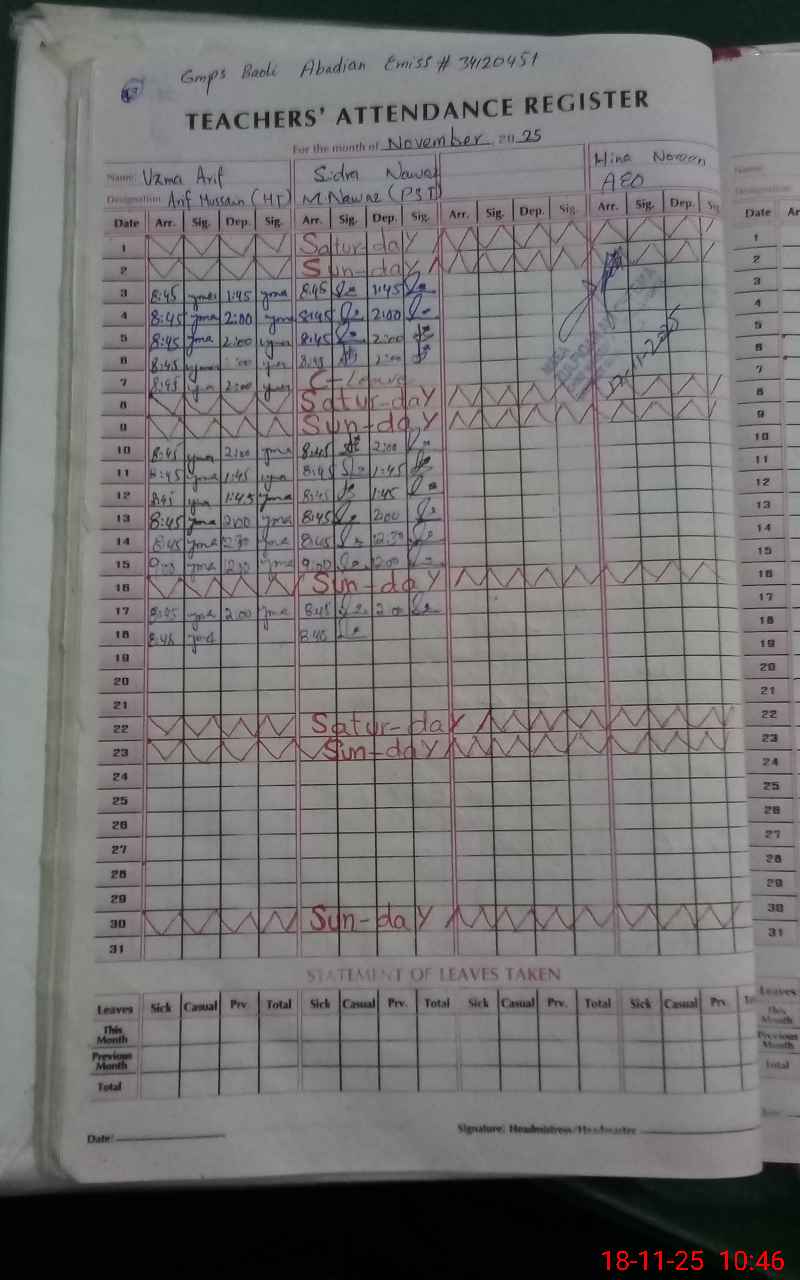 Gmps Baoli Abadian Emiss # 34120451
TEACHERS' ATTENDANCE REGISTER
For the month of November 2025
Name: Uzma Arif Sidra Nawaz Hina Noreen
Designation: Arif Hussain (HT) M. Nawaz (PST) AEO
Date Arr. Sig. Dep. Sig. Arr. Sig. Dep. Sig. Arr. Sig. Dep. Sig. Arr. Sig. Dep. Date
1 Satur-day 1
2 Sun-day 2
3 8:45 1:45 8:45 1:45 3
4 8:45 2:00 8:45 2:00 4
5 8:45 2:00 8:45 2:00 5
6 8:45 8:45 2:00 6
7 8:45 2:00 C-Leave 7
8 Satur-day 8
9 Sun-day 9
10 8:45 2:00 8:45 2:00 10
11 8:45 1:45 8:45 1:45 11
12 8:45 1:45 8:45 1:45 12
13 8:45 2:00 8:45 2:00 13
14 8:45 12:30 8:45 12:30 14
15 9:00 12:00 9:00 12:00 15
16 Sun-day 16
17 8:45 2:00 8:45 2:00 17
18 8:45 8:45 18
19 19
20 20
21 21
22 Satur-day 22
23 Sun-day 23
24 24
25 25
26 26
27 27
28 28
29 29
30 Sun-day 30
31 31
STATEMENT OF LEAVES TAKEN
Leaves Sick Casual Prv. Total Sick Casual Prv. Total Sick Casual Prv. Total Sick Casual Prv. Leaves
This Month This Month
Previous Month Previous Month
Total Total
Date: Signature: Headmistress/Headmaster
18-11-25 10:46